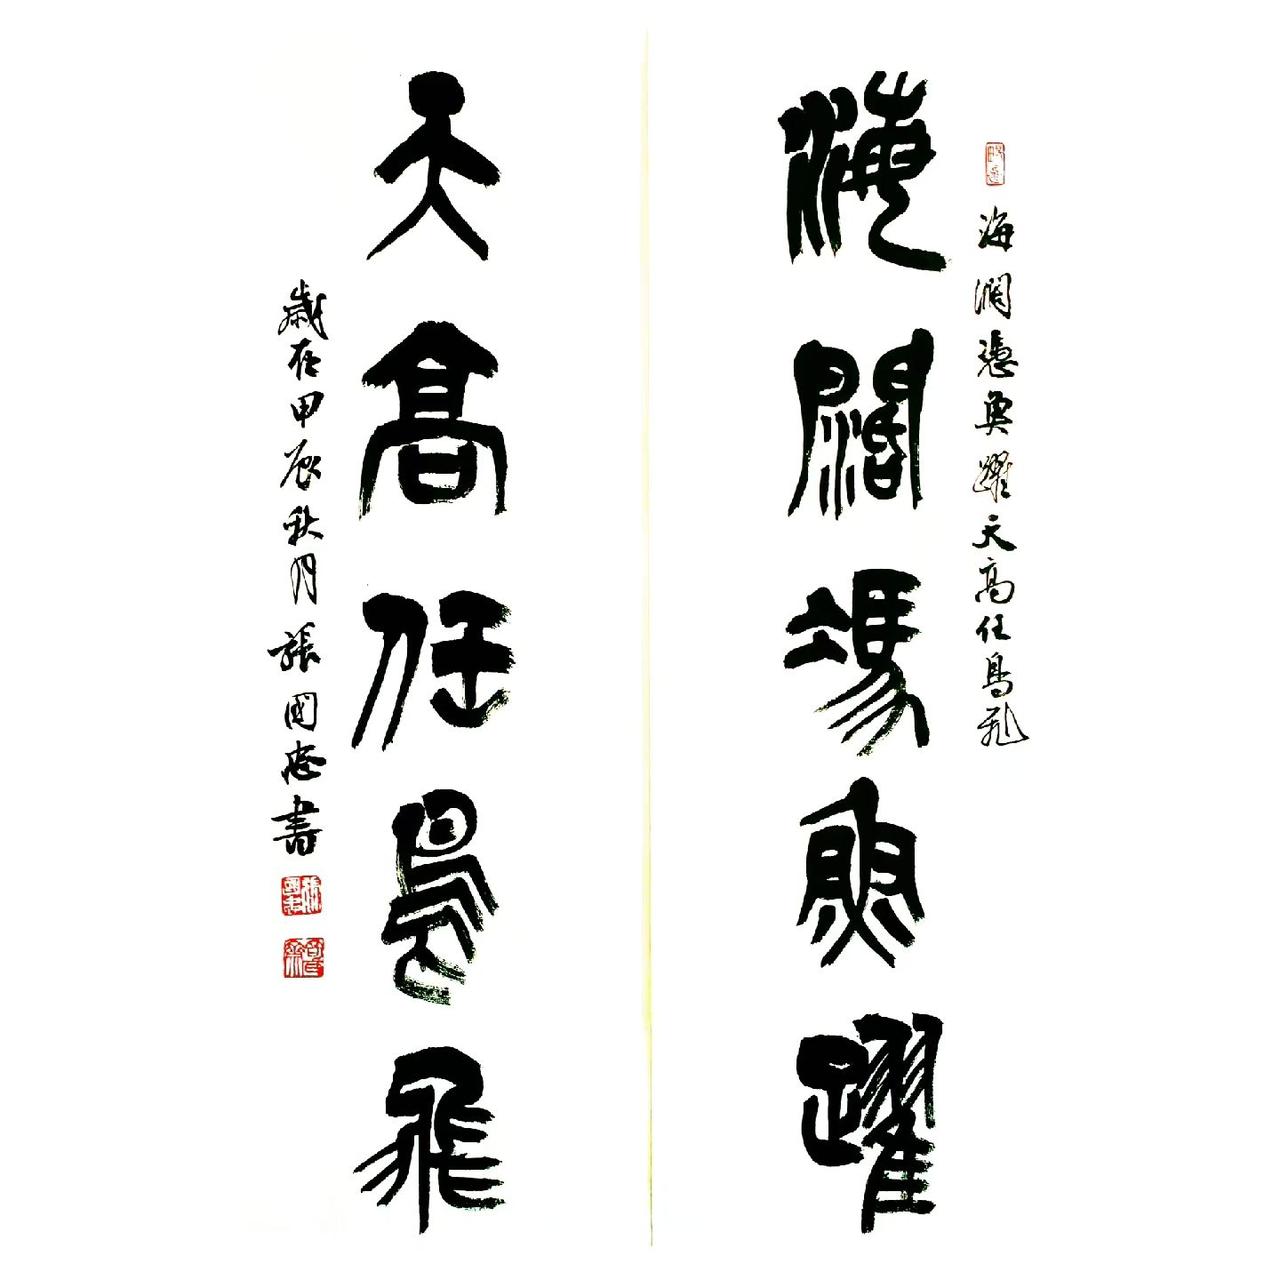 海闊憑魚躍天高任鳥飛
海闊馮魚躍
天高任鳥飛
歲在甲辰秋月張國志書